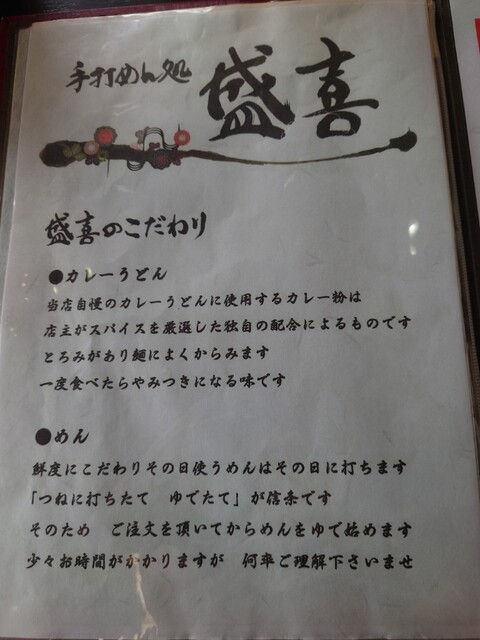 手打めん処
盛喜
盛喜のこだわり
●カレーうどん
当店自慢のカレーうどんに使用するカレー粉は
店主がスパイスを厳選した独自の配合によるものです
とろみがあり麺によくからみます
一度食べたらやみつきになる味です
●めん
鮮度にこだわりその日使うめんはその日に打ちます
「つねに打ちたて　ゆでたて」が信条です
そのため　ご注文を頂いてからめんをゆで始めます
少々お時間がかかりますが　何卒ご理解下さいませ